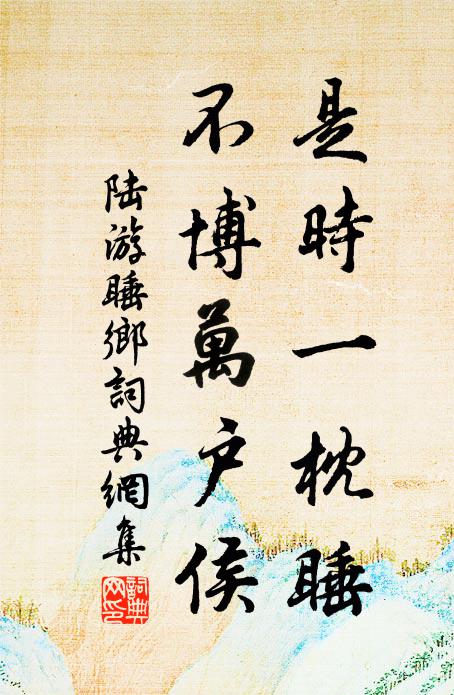 是時一枕睡
不博萬戶侯
陆游睡鄉詞典網集
詞典
網印